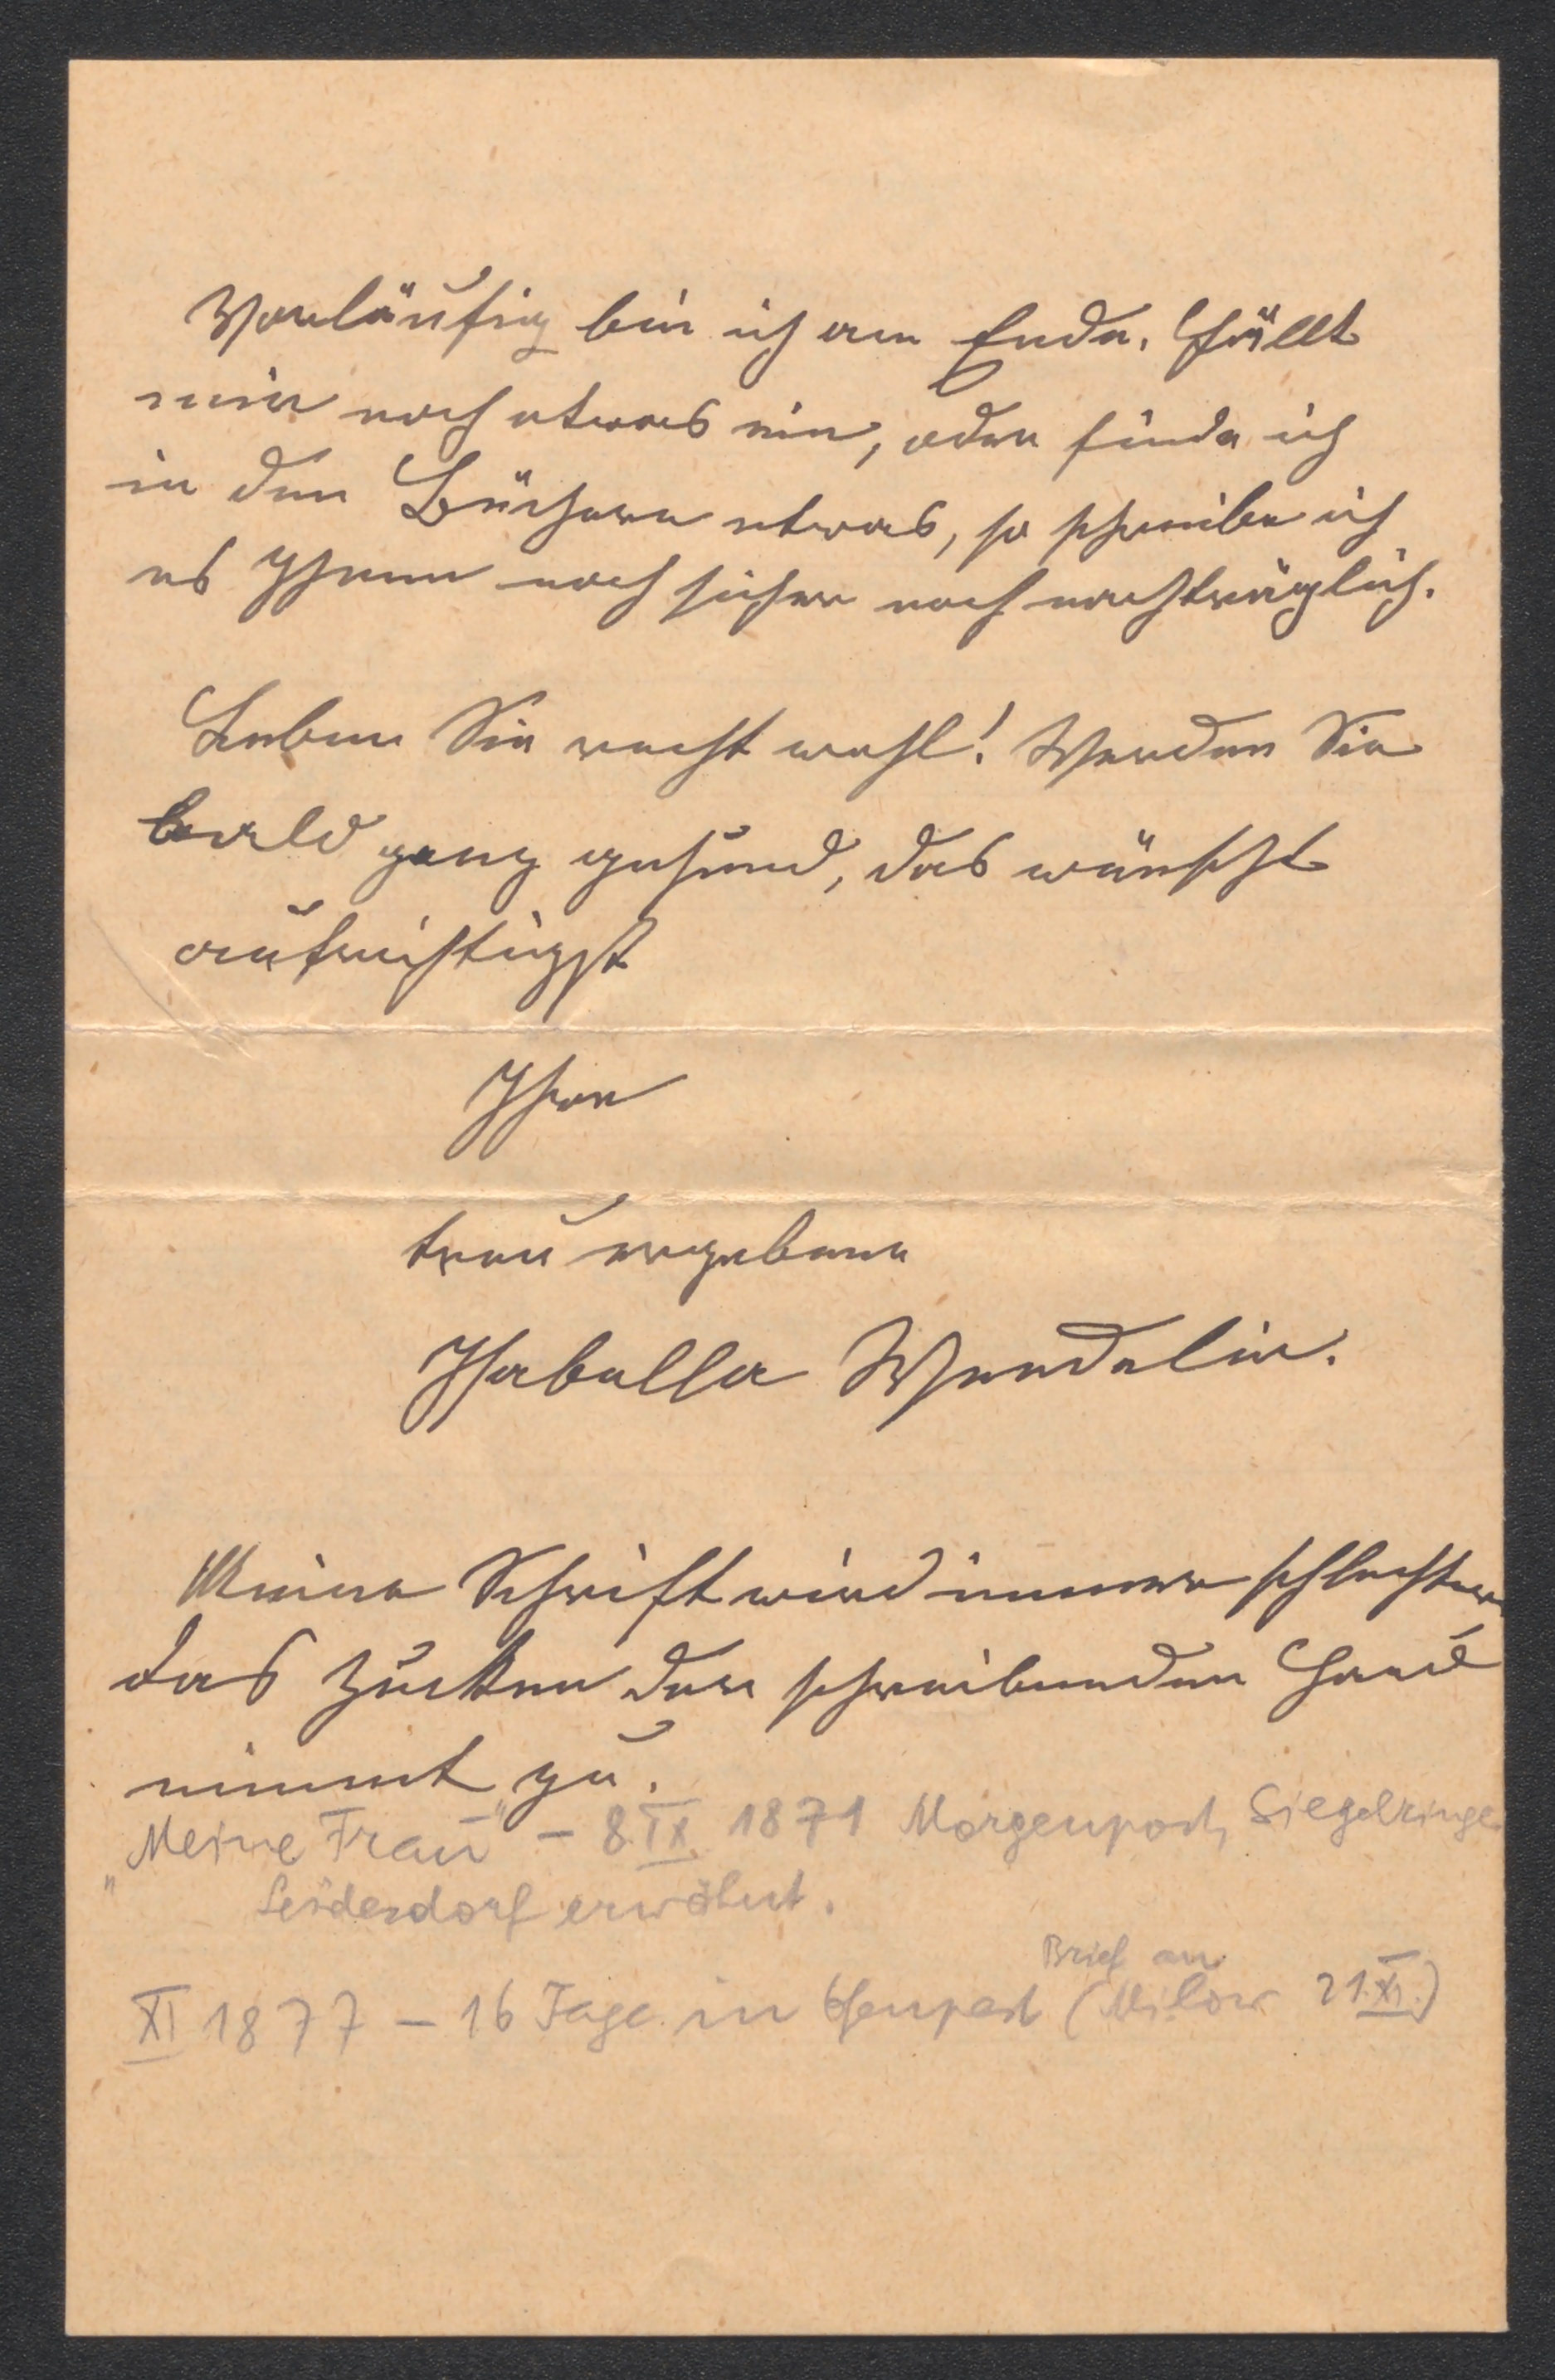 Vorläufig bin ich am Ende. Fällt
mir noch etwas ein, oder finde ich
in den Büchern etwas, so schreibe ich
es Ihnen noch sicher noch nachträglich.
Leben Sie recht wohl! Werden Sie
bald ganz gesund, das wünscht
aufrichtigst
Ihre
treu ergebene
Isabella Wendelin.
Meine Schrift wird immer schlechter
das Zucken der schreibenden Hand
nimmt zu.
"Meine Frau" – 8 IX 1871 Morgenpost, Siegelringe
erwähnt.
Brief an
XI 1877 – 16 Tage in Ofenpest (Milow 21.XI.)